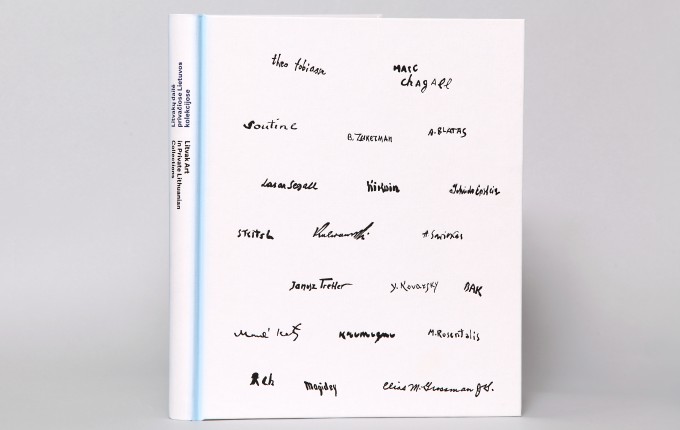 Litvakų dailė
privačiose Lietuvos
kolekcijose
Litvak Art
in Private Lithuanian
Collections
theo tobiasse
MARC
chagall
Soutine
B. ZUKERMAN
A. BLATAS
Lasar Segall
Kikoïn
Jehudo Epstein
Janusz Tretler
Y. Kovarsky
BAK
Mané Katz
M. Rosentalis
Magidey
Elias M. Grossman